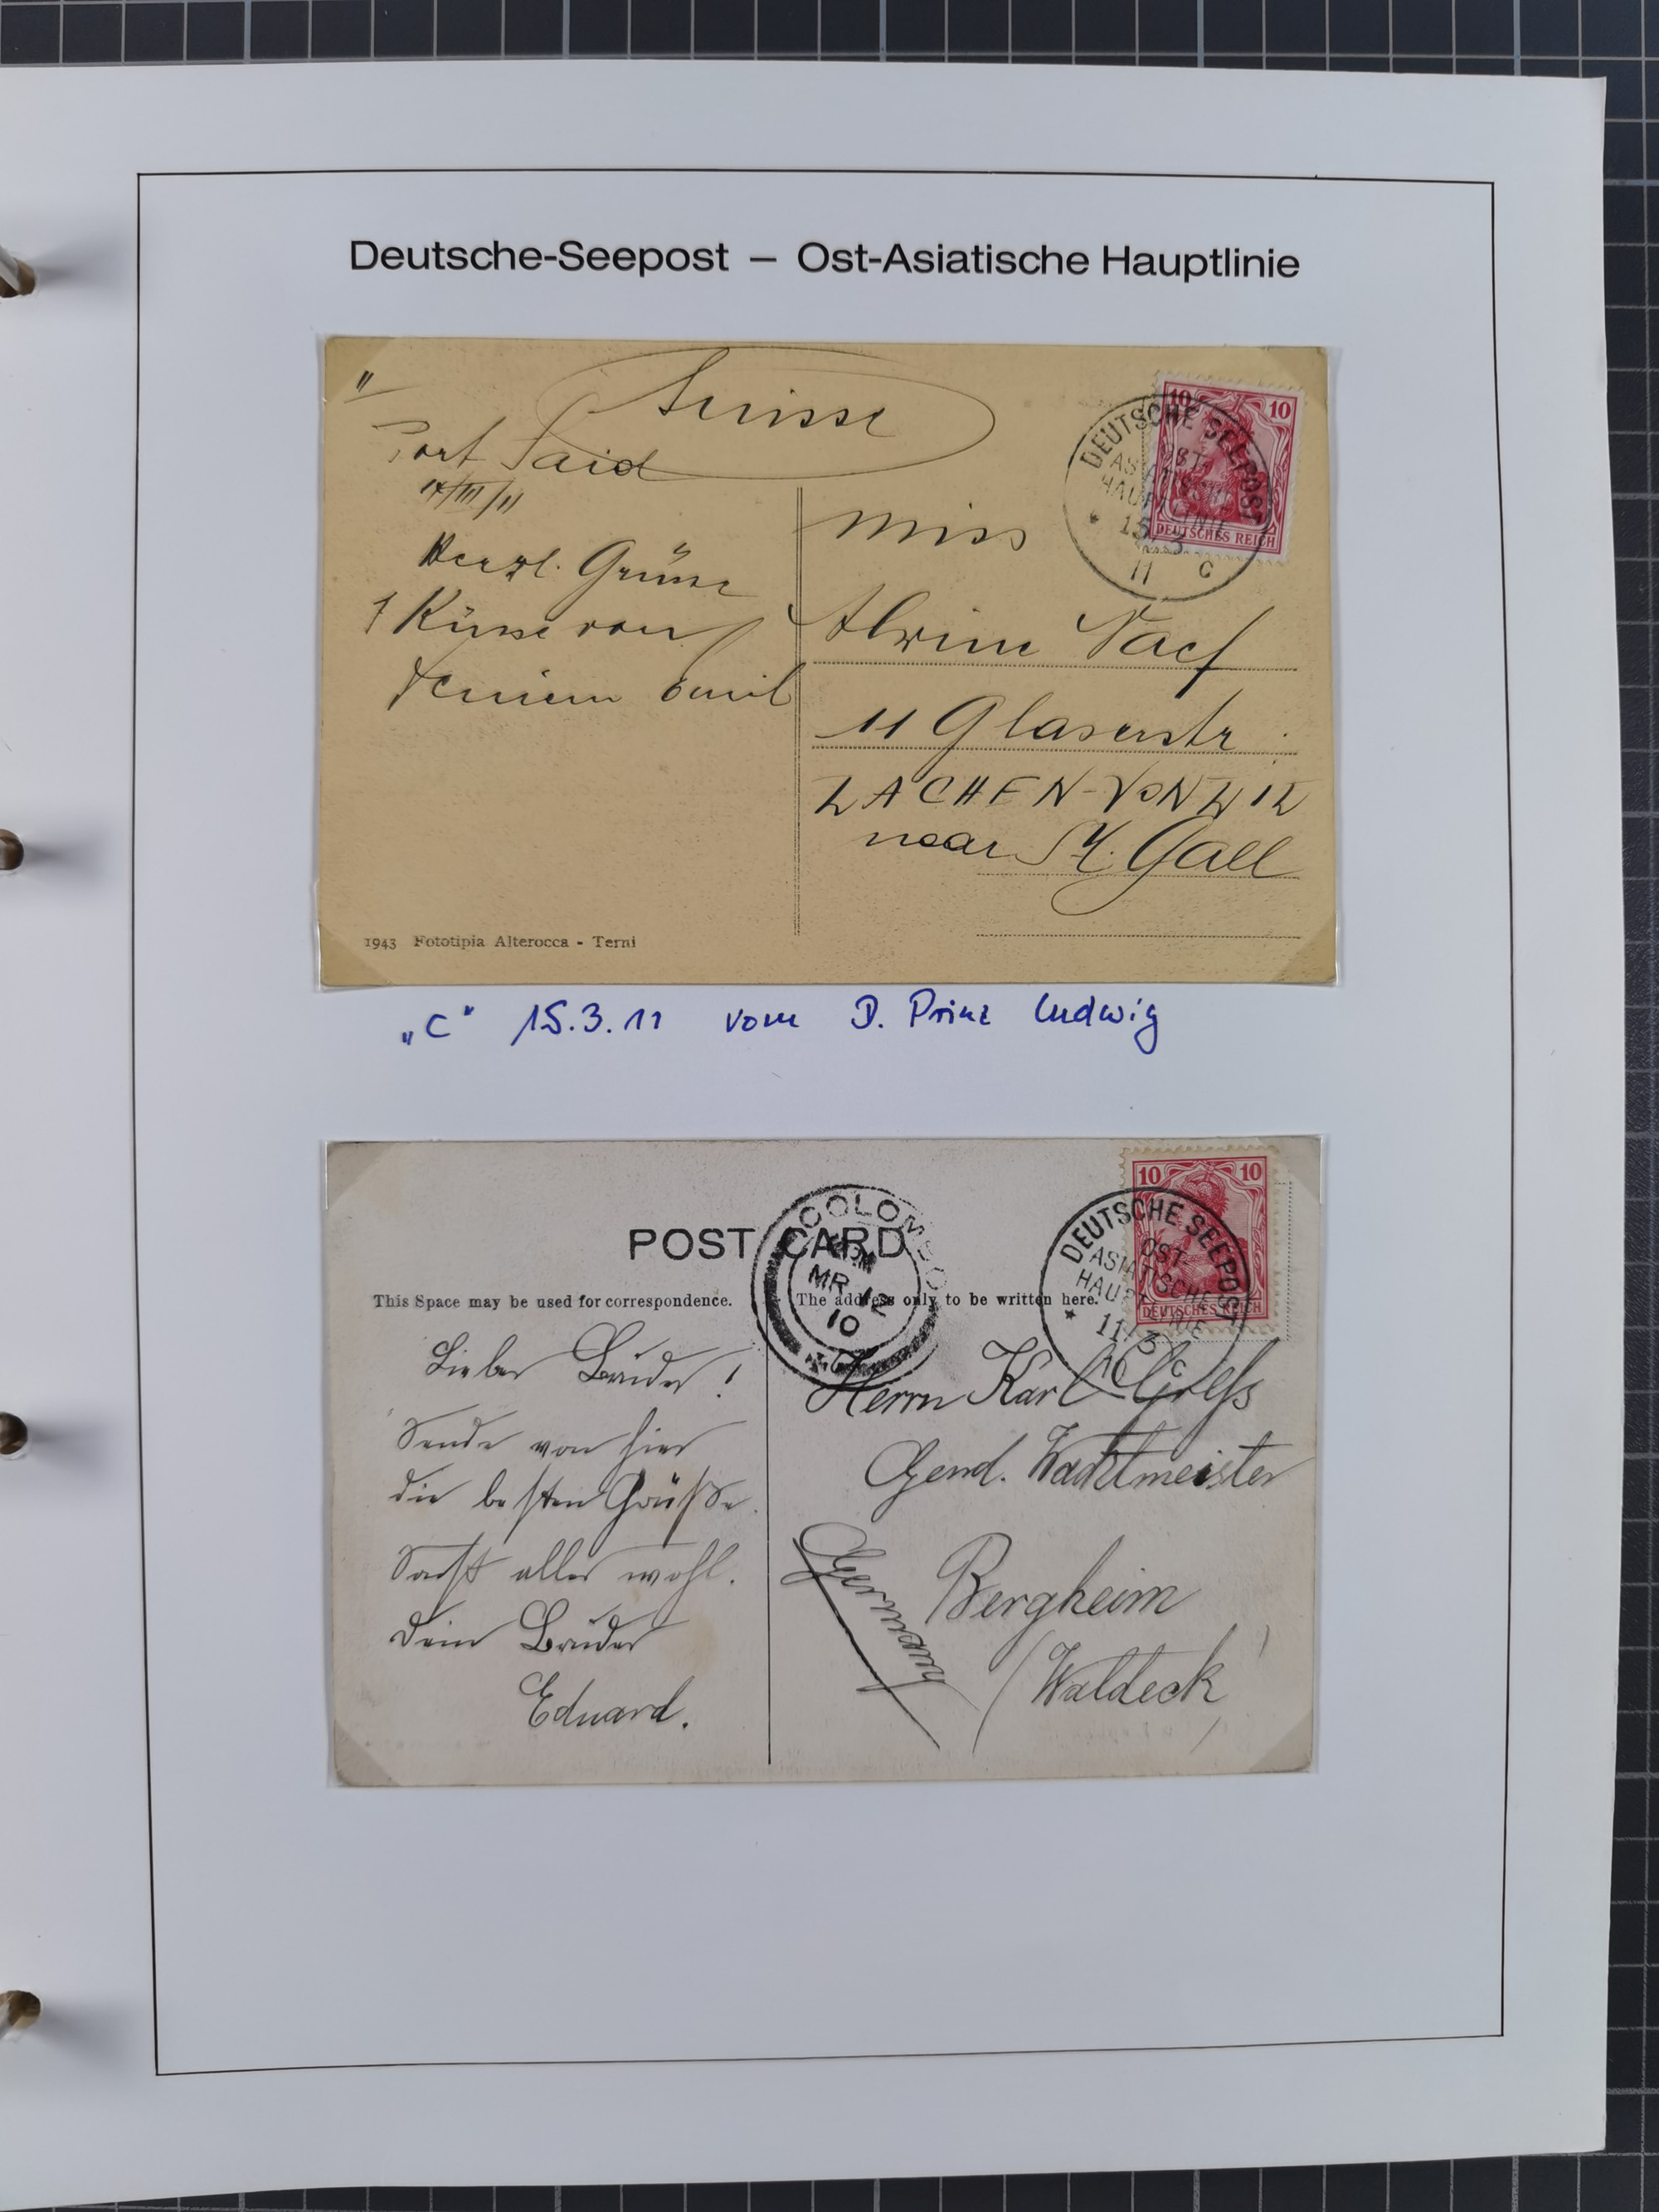 Deutsche-Seepost – Ost-Asiatische Hauptlinie
Suisse
Port Said
14/III/11
Herzl. Grüsse
+ Küsse von
Deinem Emil
DEUTSCHE SEEPOST
OST-
ASIATISCHE
HAUPTLINIE
* 15 3
11 c
10 10
DEUTSCHES REICH
Miss
Alwine Naef
11 Glaserstr.
LACHEN-VONWIL
near St. Gall
1943 Fototipia Alterocca - Terni
„C" 15.3.11 vom D. Prinz Ludwig
POST CARD
COLOMBO
MR 12
10
10 10
DEUTSCHES REICH
DEUTSCHE SEEPOST
OST-
ASIATISCHE
HAUPTLINIE
* 11/3
10 c
This Space may be used for correspondence.
The address only to be written here.
Lieber Bruder!
Sende von hier
die besten Grüße.
Sonst alles wohl.
Dein Bruder
Eduard.
Herrn Karl
Gend. Wachtmeister
Bergheim
(Waldeck)
Germany